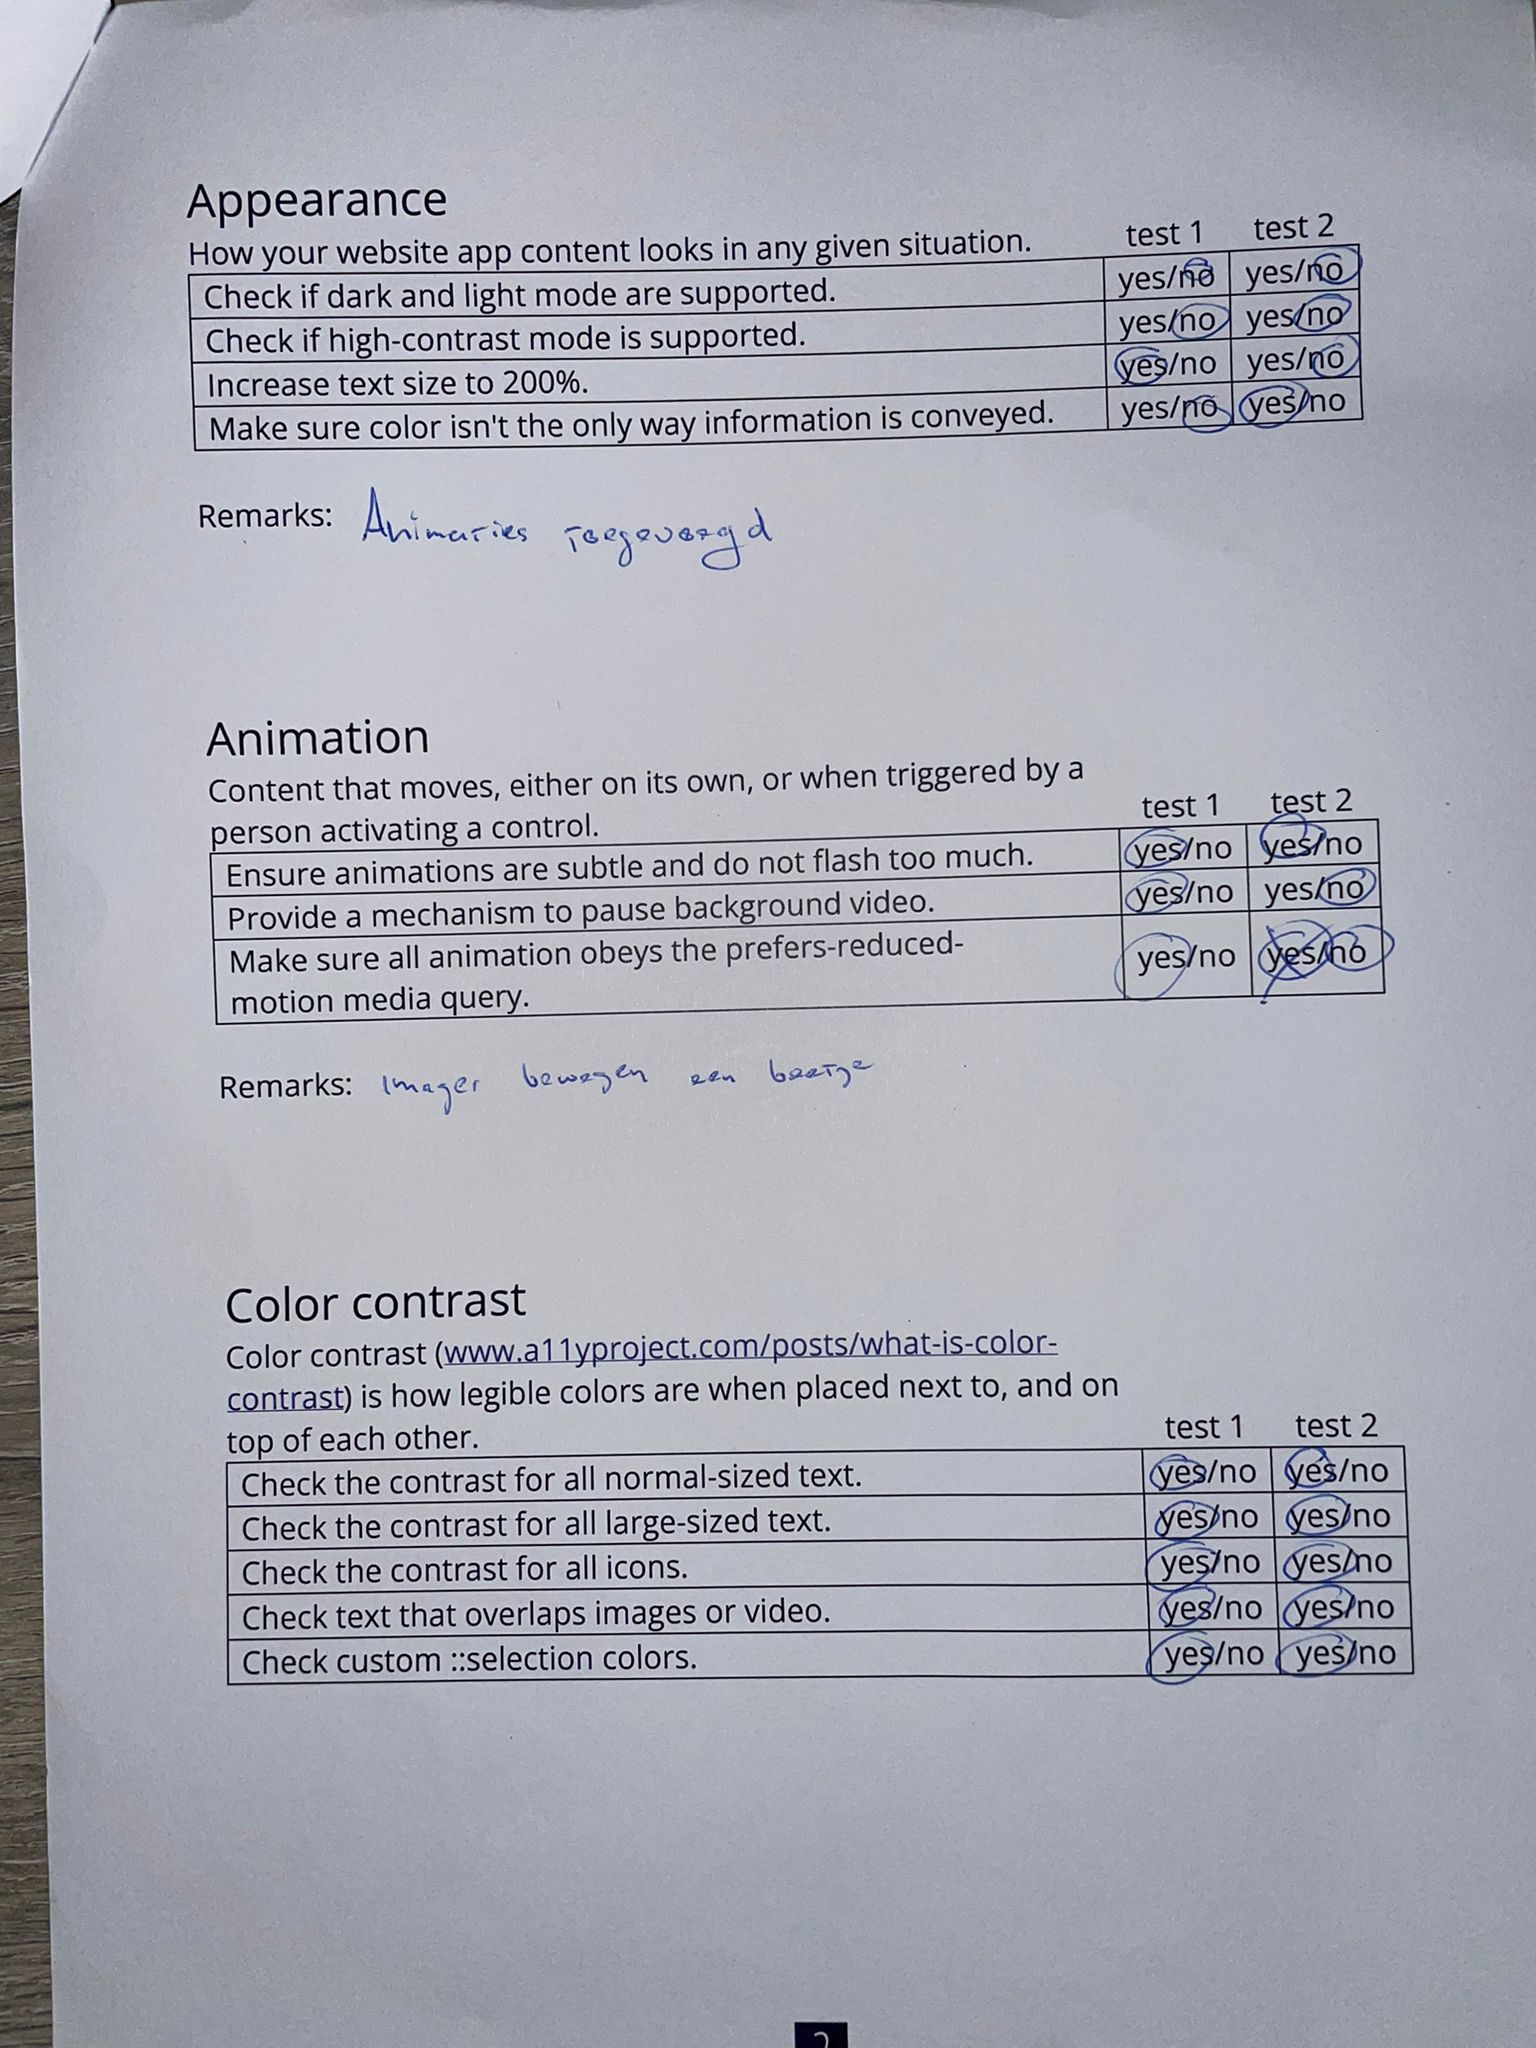 Appearance
How your website app content looks in any given situation. test 1 test 2
Check if dark and light mode are supported. yes/no yes/no
Check if high-contrast mode is supported. yes/no yes/no
Increase text size to 200%. yes/no yes/no
Make sure color isn't the only way information is conveyed. yes/no yes/no
Remarks: Animaties toegevoegd
Animation
Content that moves, either on its own, or when triggered by a
person activating a control. test 1 test 2
Ensure animations are subtle and do not flash too much. yes/no yes/no
Provide a mechanism to pause background video. yes/no yes/no
Make sure all animation obeys the prefers-reduced-
motion media query. yes/no yes/no
Remarks: Images bewegen een beetje
Color contrast
Color contrast (www.a11yproject.com/posts/what-is-color-
contrast) is how legible colors are when placed next to, and on
top of each other. test 1 test 2
Check the contrast for all normal-sized text. yes/no yes/no
Check the contrast for all large-sized text. yes/no yes/no
Check the contrast for all icons. yes/no yes/no
Check text that overlaps images or video. yes/no yes/no
Check custom ::selection colors. yes/no yes/no
2